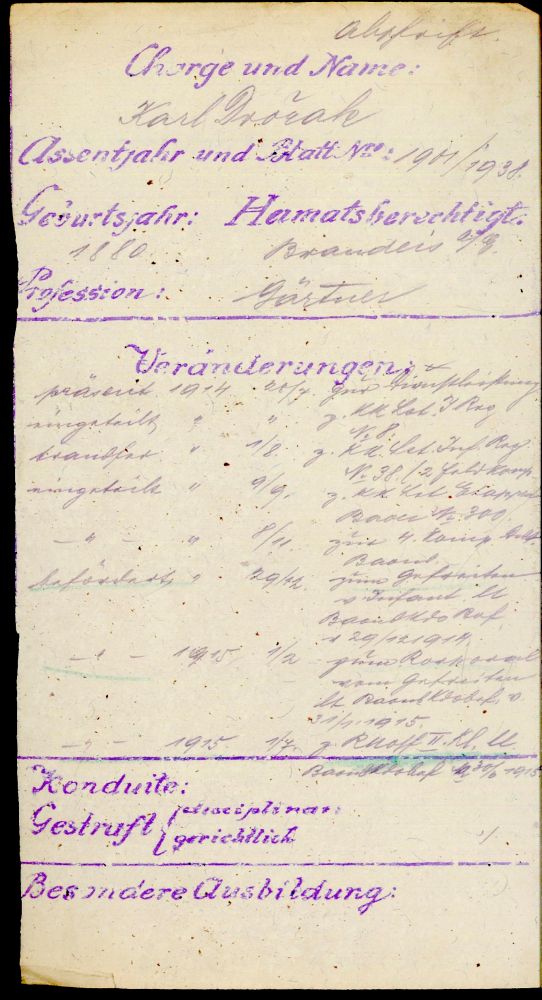 Abschrift.
Charge und Name:
Karl Dvořak
Assentjahr und Blatt Nro: 1901/1938.
Geburtsjahr: Heimatsberechtigt:
1880. Brandeis a/E.
Profession: Gärtner
Veränderungen:
präsent 1914 20/7. zur
eingeteilt " " z. KK. Lst. I Reg
No 8.
transfer " 1/8 z. KK. Lst. Inf. Reg
No 38/2 Feldkomp
eingeteilt " 9/9. z. KK Lst. Etappen
Baon No 300
- " - " 8/11 zur 4. Komp.
Baons.
befördert " 29/12. zum Gefreiten
v. Infant. lt
BaonsKdo Bef.
v 29/12 1914.
- " - 1915 1/2 zum Korporal
vom Gefreiten
lt BaonsKdobef. v.
31/1. 1915
- " - 1915. 1/7. z. RUoff II. Kl. lt
BaonsKdobef 1915
Konduite:
Gestraft { disciplinar:
gerichtlich ./.
Besondere Ausbildung: